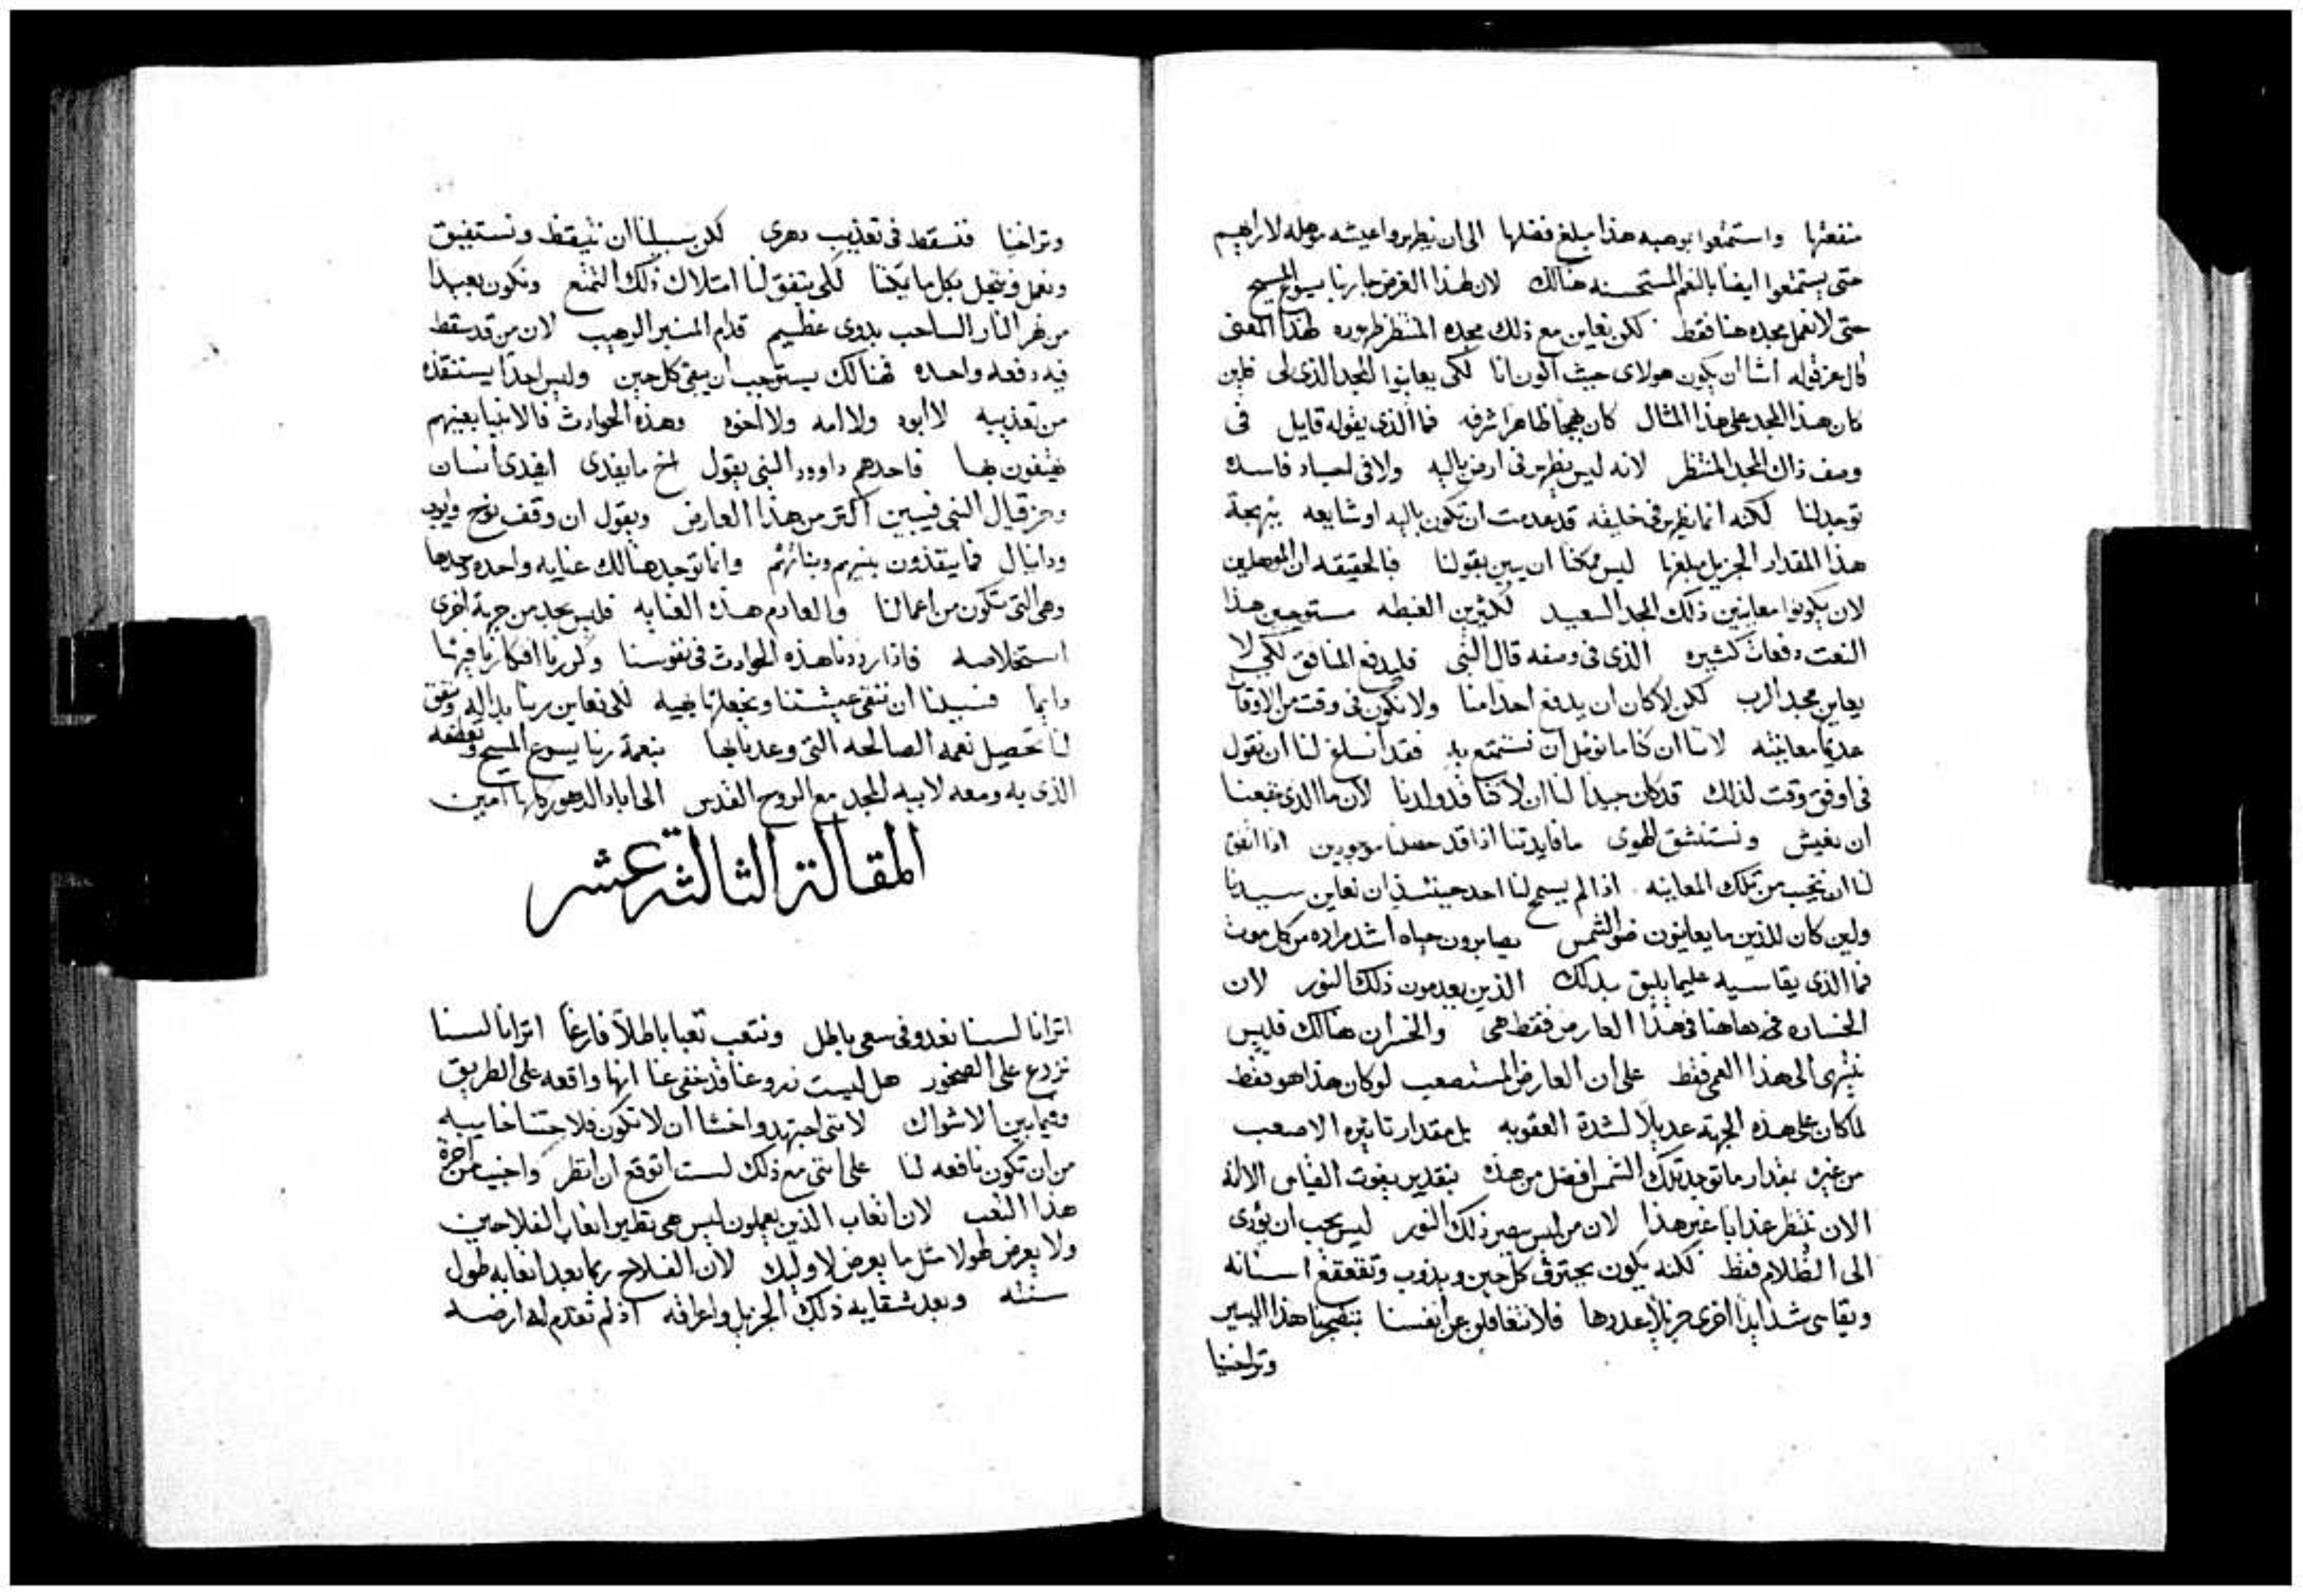 منفعتها واستمتعوا بوهبه هذا مبلغ فضلها الى ان يظهروا عيشه موهله لاراهيم
حتى يستمتعوا ايضا بالنعم المستحسنه هنالك لان لهذا الغرض جا ربنا يسوع المسيح
حتى لا نعمل مجده هنا فقط لكن نعاين مع ذلك مجده المنتظر ظهوره لهذا المعنى
قال عز قوله اشا ان يكون هولاى حيث اكون انا لكى يعاينوا المجد الذى لى فلين
كان هذا المجد على هذا المثال كان بهجا ظاهرا شرفه فما الذى يقوله قايل فى
وصف ذاك المجد المنتظر لانه ليس يظهر فى ارض باليه ولا فى اجساد فاسده
توجد لنا لكنه انما يظهر فى خليقه قد عدمت ان تكون باليه او شايعه ببهجة
هذا المقدار الجزيل مبلغها ليس ممكنا ان يبين بقولنا فالحقيقه ان الموهلين
لان يكونوا معاينين ذلك المجد السعيد لكثيرين الغبطه مستوجبين هذا
النعت دفعات كثيره الذى فى وصفه قال النبى فليدفع المنافق لكى لا
يعاين مجد الرب لكن لا كان ان يدفع احدا منا ولا نكون فى وقت من الاوقات
عديما معاينته لاننا ان كنا ما نومل ان نستمتع به فقد انساغ لنا ان نقول
فى اوفق وقت لذلك قد كان جيدا لنا ان لا كنا قد ولدنا لان ما الذى ينفعنا
ان نعيش ونستنشق الهوى ما فايدتنا اذا قد حصلنا موجودين اذا اتفق
لنا ان نخيب من تلك المعاينه اذا لم يسمح لنا احد حينئذ ان نعاين سيدنا
ولين كان الذين ما يعاينون ضو الشمس يصابرون حياه اشد مراره من كل موت
فما الذى يقاسيه عليما يليق بذلك الذين يعدمون ذلك النور لان
الخساره فى هاهنا فى هذا العارض فقط هى والخسران هنالك فليس
ينتهى الى هذا العمى فقط على ان العارض المستصعب لو كان هذا هو فقط
لما كان على هذه الجهة عديلا لشدة العقوبه بل مقدار تاثيره الاصعب
من غيره بمقدار ما توجد تلك الشمس افضل من هذه بتقدير يفوت القياس الا انه
الان ننتظر عذابا غير هذا لان من ليس يبصر ذلك النور ليس يجب ان يودى
الى الظلام فقط لكنه يكون يحترق كل حين ويذوب وتقعقع اسنانه
ويقاسى شدايدا اخرى جزيلا عددها فلا نتغافلن عن انفسنا بتضجرنا هذا اليسير
وتراخينا
وتراخينا فنسقط فى تعذيب دهرى لكن سبيلنا ان نتيقظ ونستفيق
ونعمل ونتحيل بكل ما يمكننا لكى يتفق لنا امتلاك ذلك التمتع ونكون بعيدا
من نهر النار الساحب بدوى عظيم قدام المنبر الرهيب لان من قد سقط
فيه دفعه واحده فهنالك يستوجب ان يبقى كل حين وليس احدا يستنقذه
من تعذيبه لا ابوه ولا امه ولا اخوه وهذه الحوادث فالانبيا بعينهم
يهتفون بها فاحدهم داوود النبى يقول اخ ما يفدى ايفدى انسان
وحزقيال النبى فيبين اكثر من هذا العارض ويقول ان وقف نوح وايوب
ودانيال فما ينقذون بنيهم وبناتهم وانما توجد هنالك عنايه واحده وحدها
وهى التى تكون من اعمالنا والعادم هذه العنايه فليس يجد من جهة اخرى
استخلاصه فاذا رددنا هذه الحوادث فى نفوسنا وكررنا افكارنا فيها
دايما فسبيلنا ان ننقى عيشتنا ونجعلها بهيه لكى نعاين ربنا بداله ويتفق
لنا تحصيل نعمه الصالحه التى وعدنا بها بنعمة ربنا يسوع المسيح وتعطفه
الذى به ومعه لابيه المجد مع الروح القدس الى اباد الدهور كلها امين
المقالة الثالثة عشر
اترانا لسنا نعدو فى سعى باطل ونتعب تعبا باطلا فارغا اترانا لسنا
نزرع على الصخور هل ليست زروعنا قد خفى عنا انها واقعه على الطريق
وفيما بين الاشواك لاننى اجتهد واخشا ان لا تكون فلاحتنا خايبه
من ان تكون نافعه لنا على اننى مع ذلك لست اتوقع ان انظر واخيب من اجرة
هذا التعب لان اتعاب الذين يعملون ليس هى نظير اتعاب الفلاحين
ولا يعرض لهولا مثل ما يعرض لاوليك لان الفلاح ربما بعد اتعابه طول
سنته وبعد شقايه ذلك الجزيل واعراقه اذ لم تقدم له ارضه